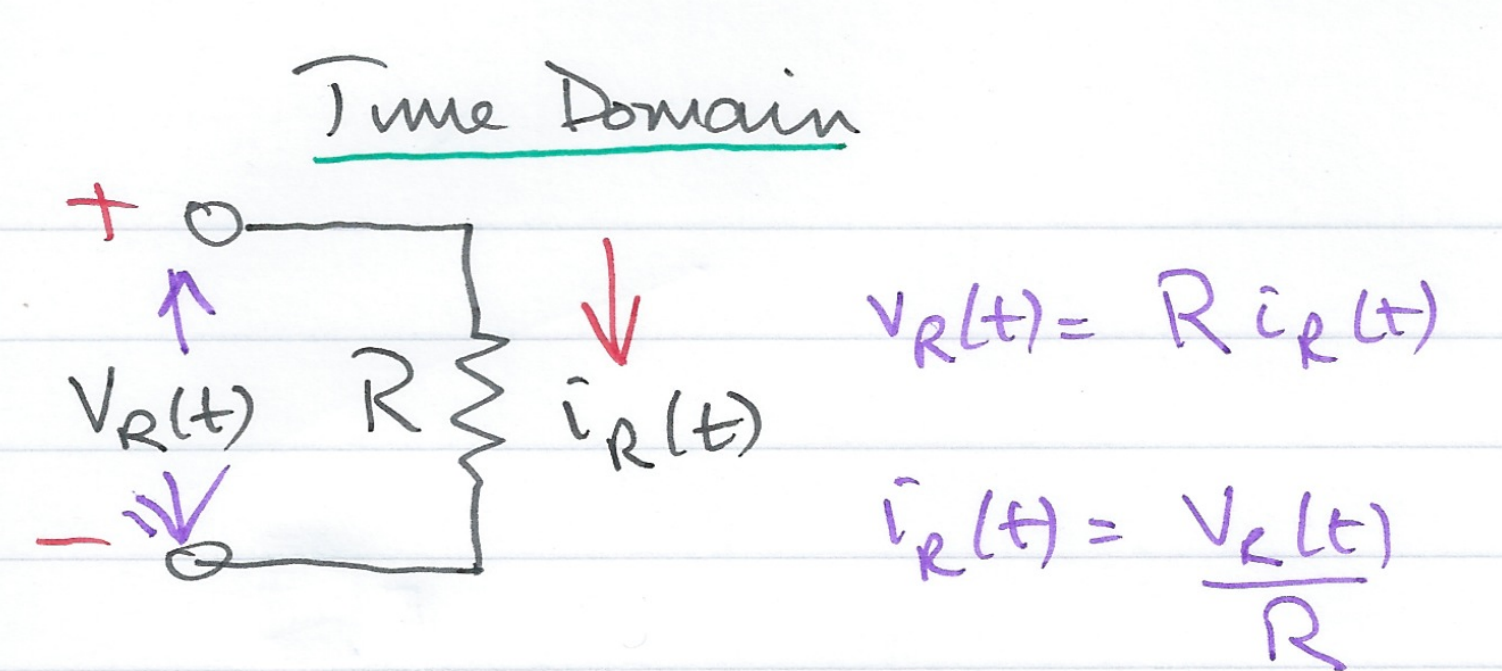 Time Domain
+
v_R(t) = R i_R(t)
V_R(t) R i_R(t)
i_R(t) = V_R(t) / R
−